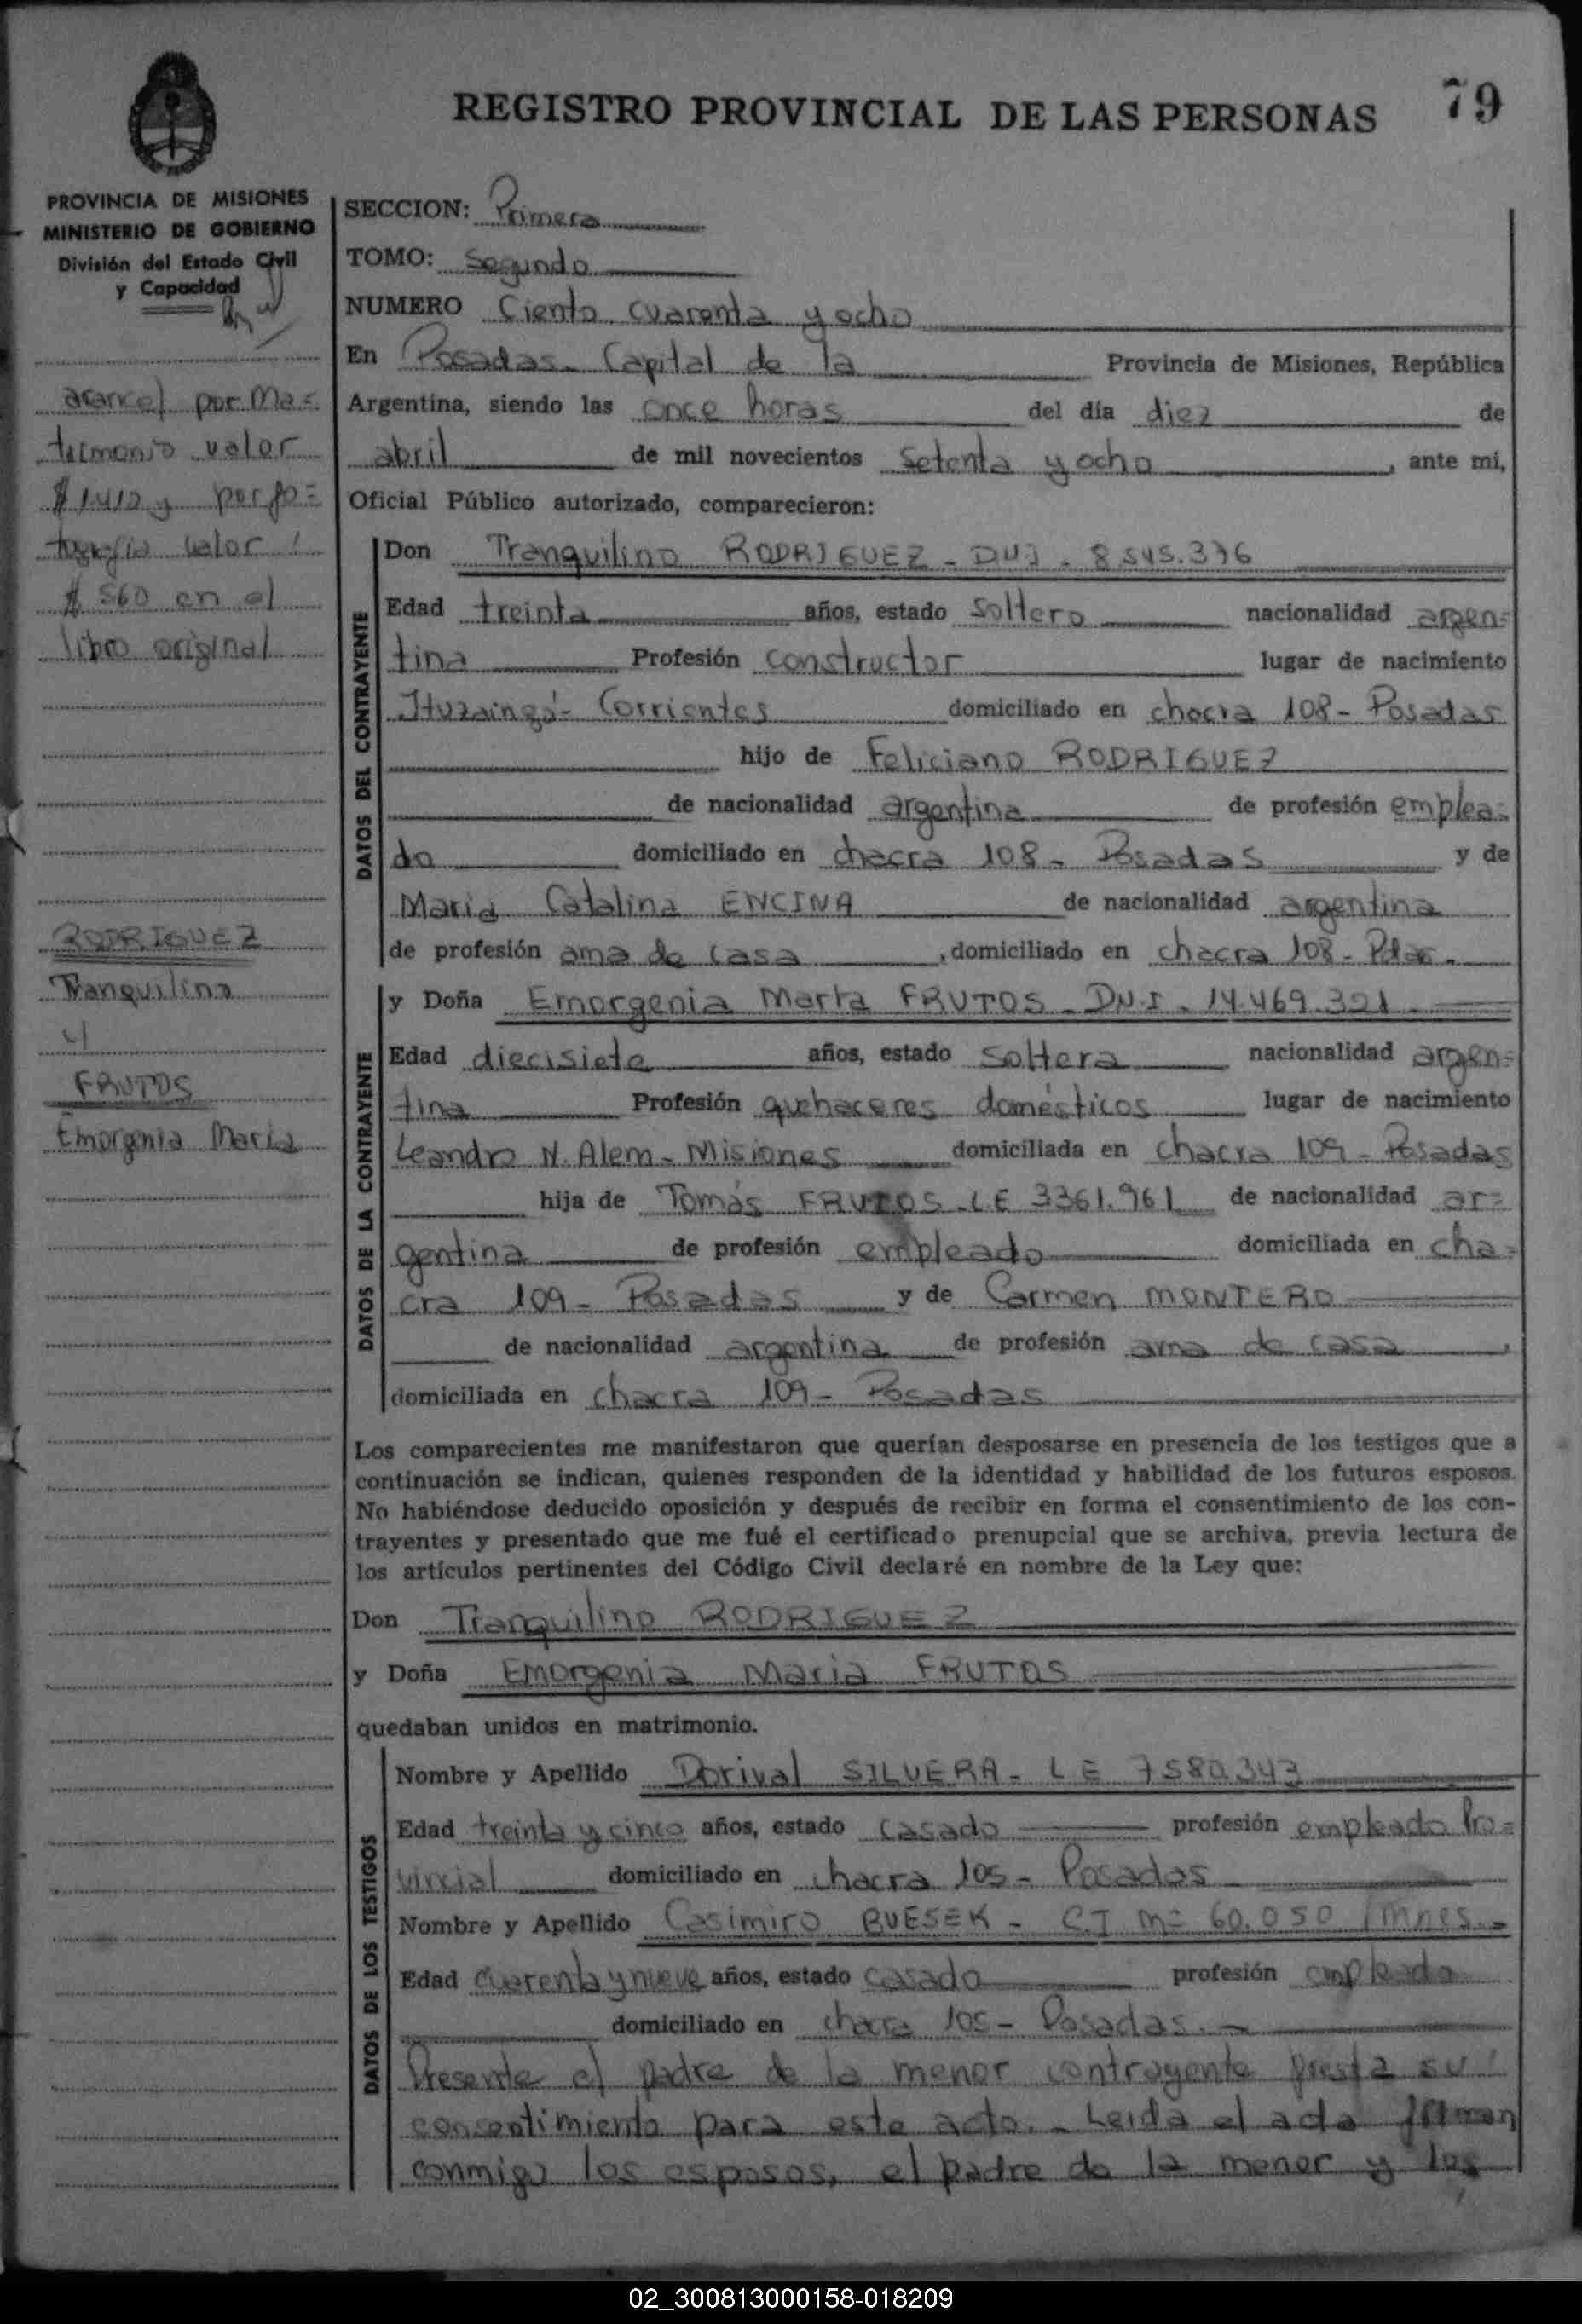 79
REGISTRO PROVINCIAL DE LAS PERSONAS
PROVINCIA DE MISIONES
MINISTERIO DE GOBIERNO
División del Estado Civil
y Capacidad
arancel por Ma=
trimonio valor
$ 1.410 y por fo=
tografía valor
$ 560 en el
libro original
RODRIGUEZ
Tranquilino
y
FRUTOS
Emorgenia Maria
SECCION: Primera
TOMO: Segundo
NUMERO Ciento cuarenta y ocho
En Posadas - Capital de la Provincia de Misiones, República
Argentina, siendo las once horas del día diez de
abril de mil novecientos setenta y ocho, ante mi,
Oficial Público autorizado, comparecieron:
DATOS DEL CONTRAYENTE
Don Tranquilino RODRIGUEZ - DNI - 8.545.376
Edad treinta años, estado soltero nacionalidad argen=
tina Profesión constructor lugar de nacimiento
Ituzaingó - Corrientes domiciliado en chacra 108 - Posadas
hijo de Feliciano RODRIGUEZ
de nacionalidad argentina de profesión emplea=
do domiciliado en chacra 108 - Posadas y de
Maria Catalina ENCINA de nacionalidad argentina
de profesión ama de casa, domiciliado en chacra 108 - Pdas.
DATOS DE LA CONTRAYENTE
y Doña Emorgenia Marta FRUTOS - DN.I - 14.469.321
Edad diecisiete años, estado soltera nacionalidad argen=
tina Profesión quehaceres domésticos lugar de nacimiento
Leandro N. Alem - Misiones domiciliada en chacra 109 - Posadas
hija de Tomás FRUTOS - LE 3361.961 de nacionalidad ar=
gentina de profesión empleado domiciliada en cha=
cra 109 - Posadas y de Carmen MONTERO
de nacionalidad argentina de profesión ama de casa,
domiciliada en chacra 109 - Posadas
Los comparecientes me manifestaron que querían desposarse en presencia de los testigos que a
continuación se indican, quienes responden de la identidad y habilidad de los futuros esposos.
No habiéndose deducido oposición y después de recibir en forma el consentimiento de los con-
trayentes y presentado que me fué el certificado prenupcial que se archiva, previa lectura de
los artículos pertinentes del Código Civil declaré en nombre de la Ley que:
Don Tranquilino RODRIGUEZ
y Doña Emorgenia Maria FRUTOS
quedaban unidos en matrimonio.
DATOS DE LOS TESTIGOS
Nombre y Apellido Dorival SILVERA - LE 7580.343
Edad treinta y cinco años, estado casado profesión empleado Pro=
vincial domiciliado en chacra 105 - Posadas
Nombre y Apellido Casimiro BUESEK - C.I Nº 60.050 /Mnes.-
Edad cuarenta y nueve años, estado casado profesión empleado
domiciliado en chacra 105 - Posadas.-
Presente el padre de la menor contrayente presta su
consentimiento para este acto.- Leida el acta firman
conmigo los esposos, el padre de la menor y los
02_300813000158-018209